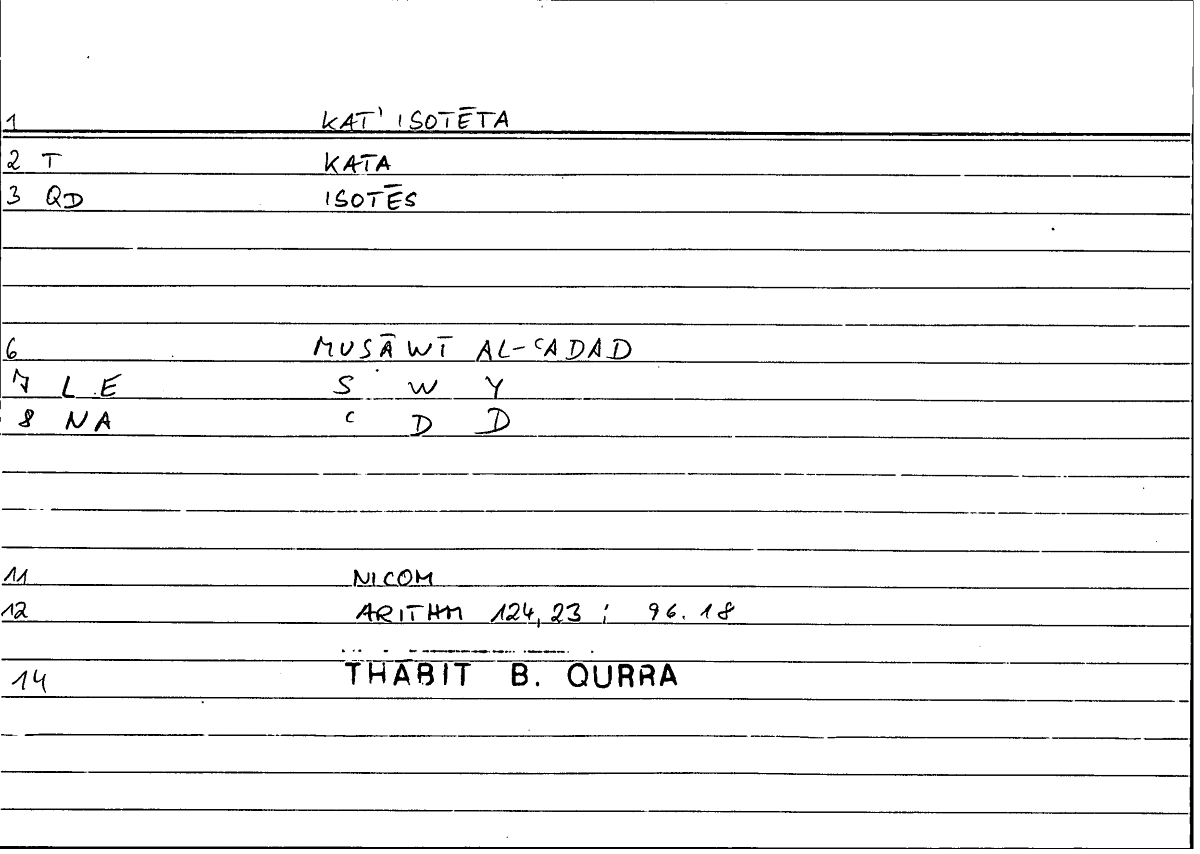 1 KAT' ISOTĒTA
2 T KATA
3 QD ISOTĒS
6 MUSĀWĪ AL-ʿADAD
7 L E S W Y
8 NA ʿ D D
11 NICOM
12 ARITHM 124,23 ; 96.18
14 THĀBIT B. QURRA